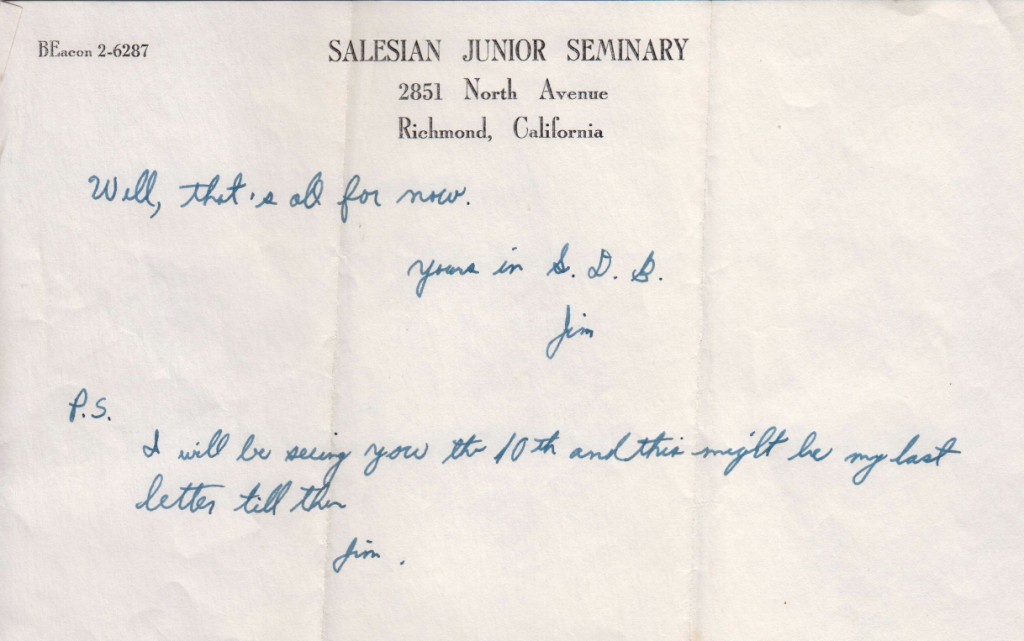 BEacon 2-6287
SALESIAN JUNIOR SEMINARY
2851 North Avenue
Richmond, California
Well, that's all for now.
yours in S. D. B.
Jim
P.S.
I will be seeing you the 10th and this might be my last
letter till then
Jim.